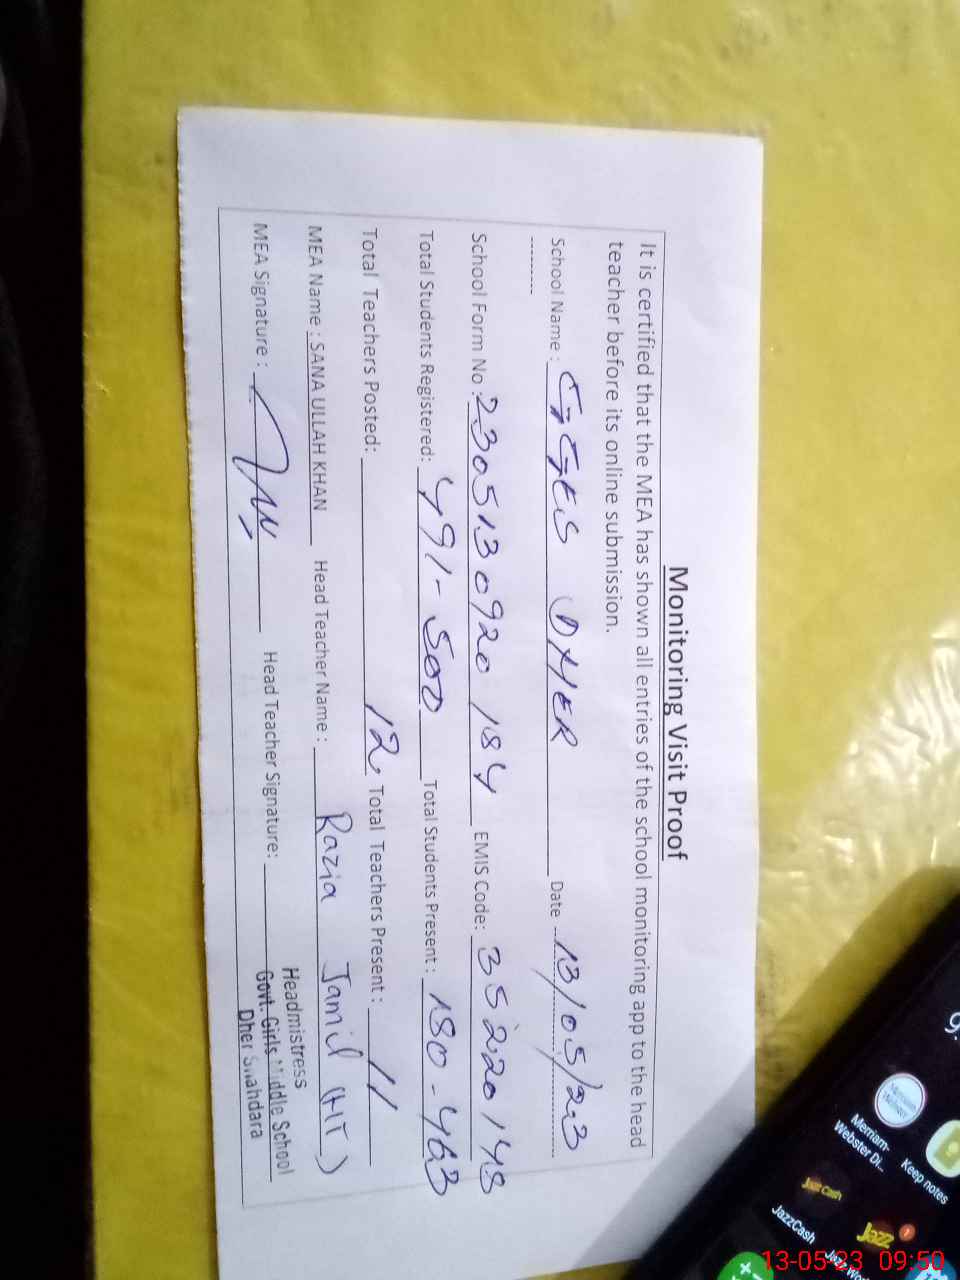 Monitoring Visit Proof
It is certified that the MEA has shown all entries of the school monitoring app to the head
teacher before its online submission.
School Name : GGES DHER Date 13/05/23
School Form No: 2305130920184 EMIS Code: 35220148
Total Students Registered: 491-500 Total Students Present : 180-463
Total Teachers Posted: 12 Total Teachers Present : 11
MEA Name : SANA ULLAH KHAN Head Teacher Name : Razia Jamil (HT)
MEA Signature : Head Teacher Signature:
Headmistress
Govt. Girls Middle School
Dher Shahdara
9
Merriam-
Webster Di...
Keep notes
JazzCash
JazzCash
Jazz
1
Jazz Wo
13-05-23 09:50